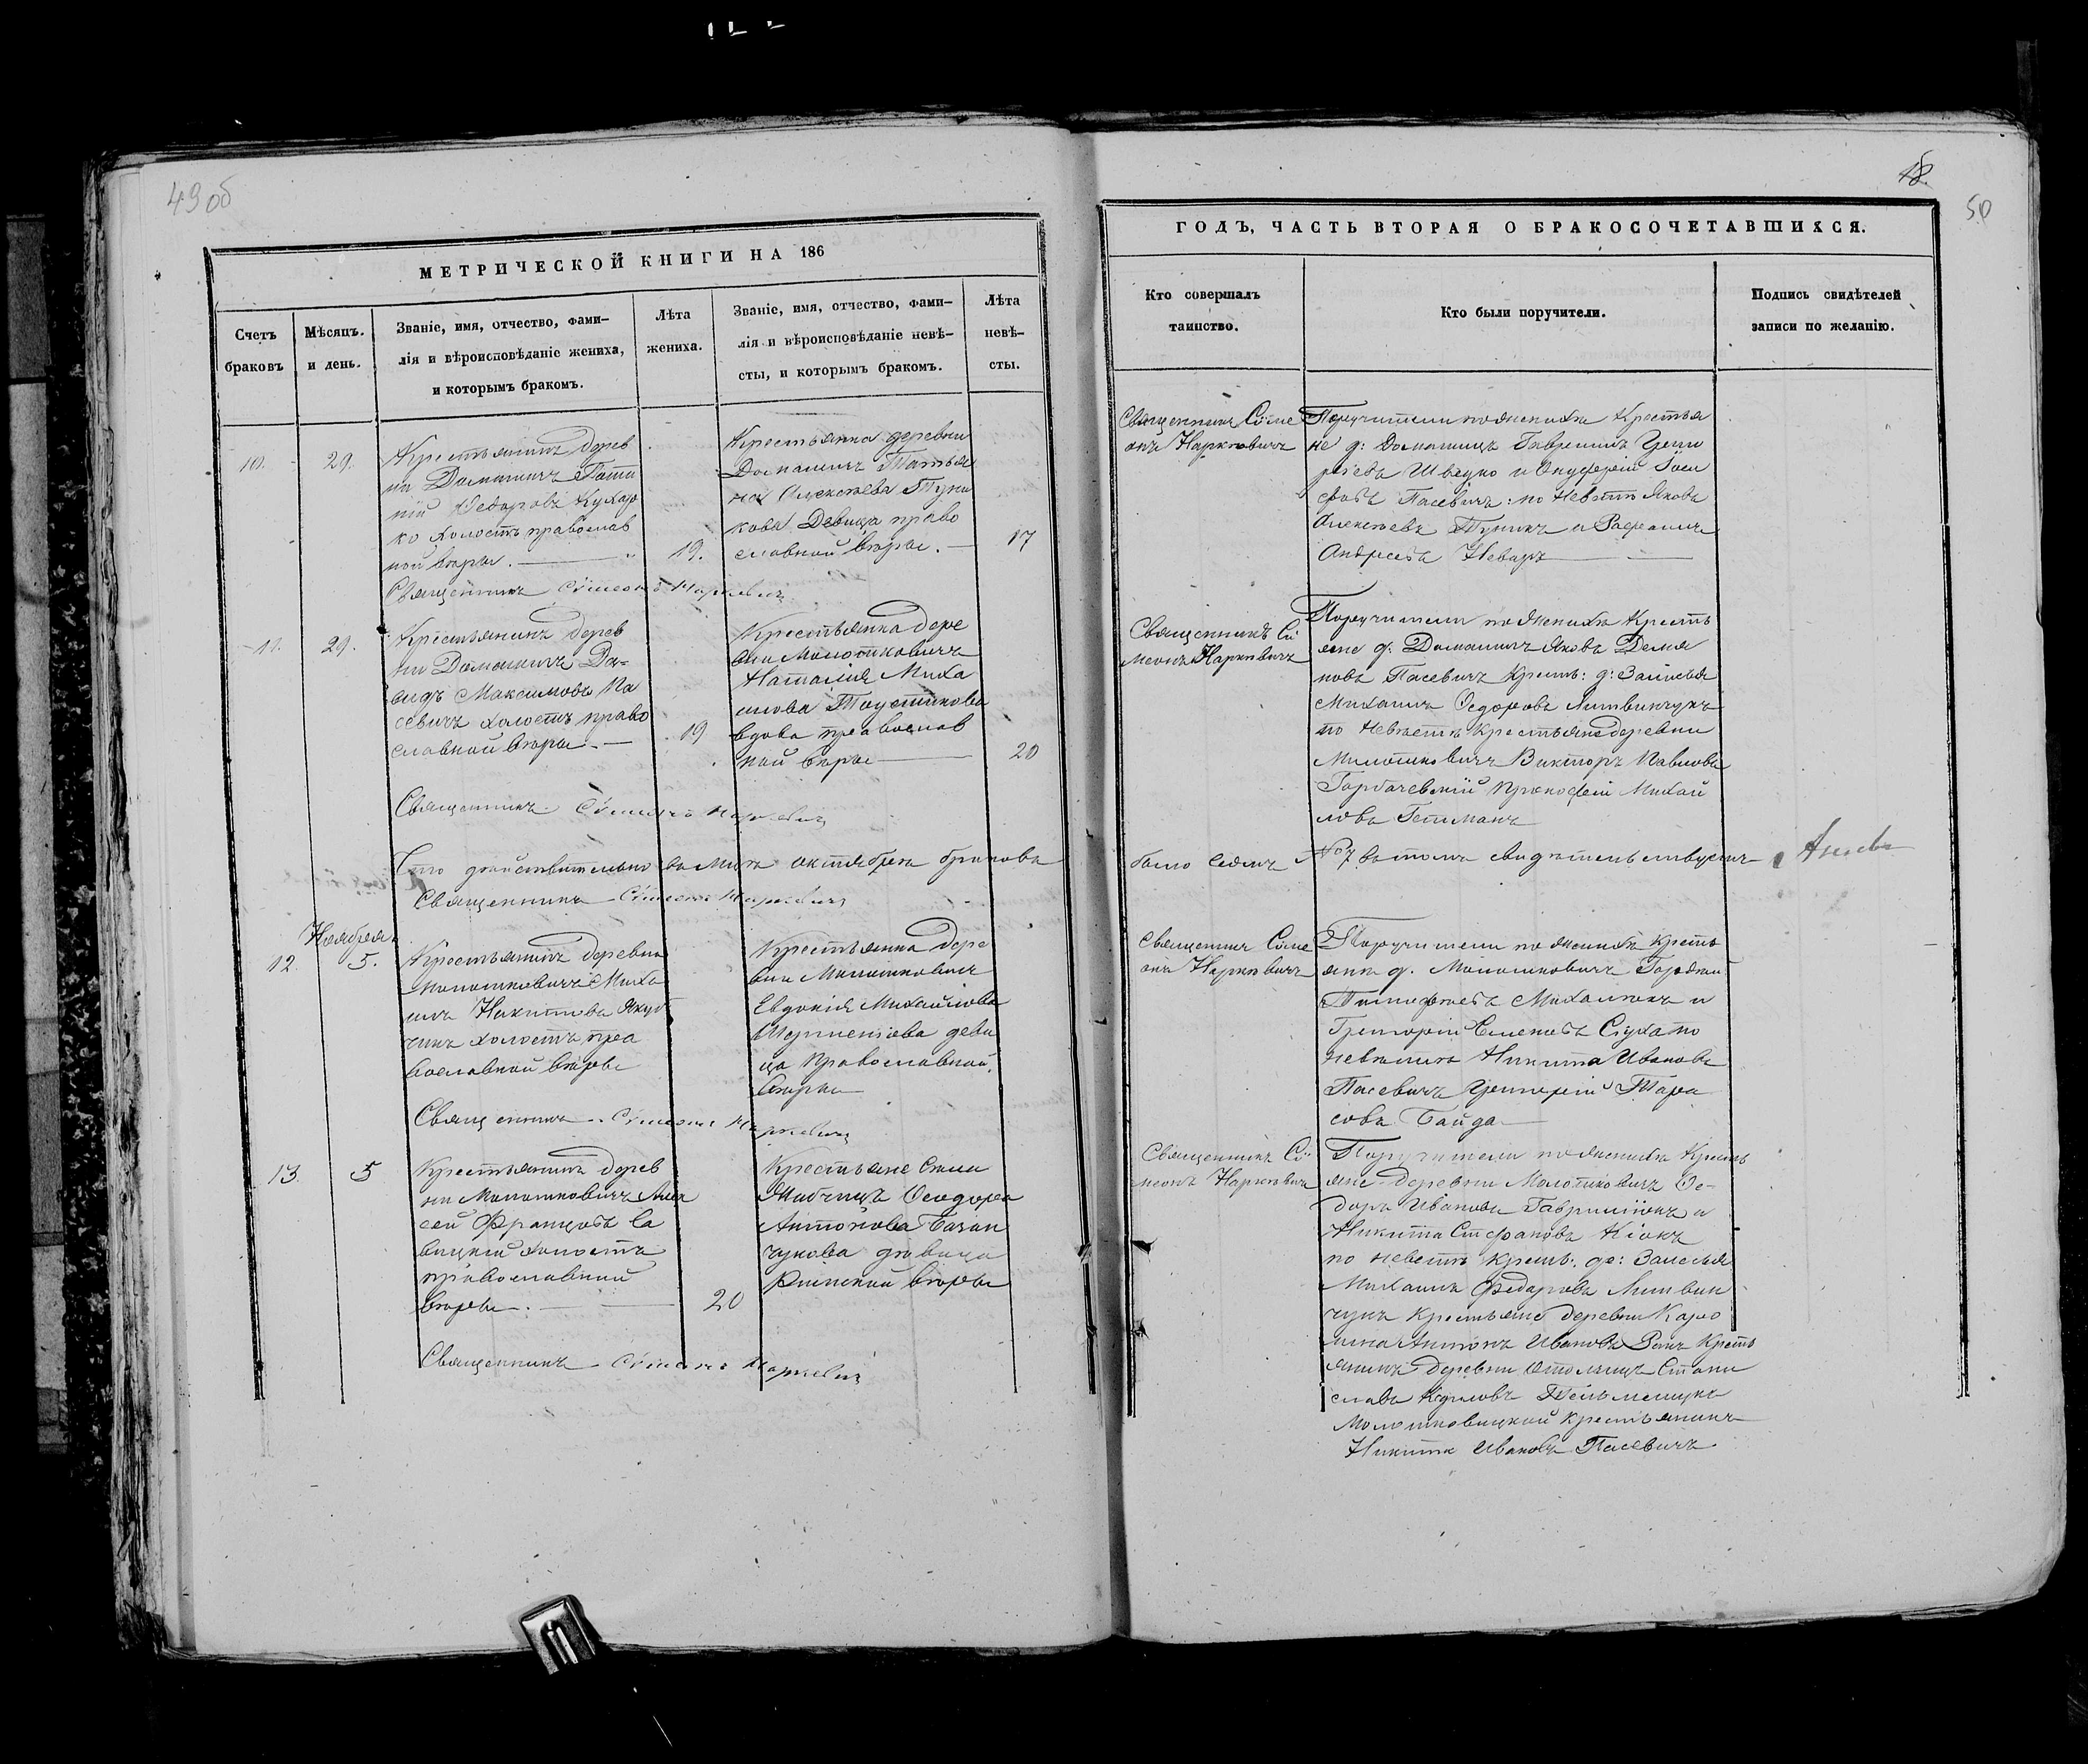 49 об
МЕТРИЧЕСКОЙ КНИГИ НА 186
Счетъ браковъ
Мѣсяцъ. и день.
Званіе, имя, отчество, фами-
лія и вѣроисповѣданіе жениха,
и которымъ бракомъ.
Лѣта жениха.
Званіе, имя, отчество, фами-
лія и вѣроисповѣданіе невѣ-
сты, и которымъ бракомъ.
Лѣта невѣ-
сты.
10.
29.
Крестьянинъ дерев
ни Домашичъ
Федоровъ Кухар
ко холостъ православ
ной вѣры.
19.
Крестьянка деревни
Домашичъ Татья
на Алексѣева Туни
кова Девица право
славной вѣры.
17
Священникъ Сѵмеонъ Наркевичъ
11.
29.
Крестьянинъ дерев
ни Домашичъ Да-
видъ Максимовъ Па
севичъ холостъ право
славной вѣры
19
Крестьянка дере
вни Молотковичъ
Наталія Миха
илова
вдова православ
ной вѣры
20
Священникъ Сѵмеонъ Наркевичъ
Что дѣйствительно въ м-цѣ октябрѣ браковъ
Священникъ Сѵмеонъ Наркевичъ
Ноября
12.
5.
Крестьянинъ деревни
Молотковичъ Миха
илъ Никитовъ Якуб
чикъ холостъ пра
вославной вѣры
Крестьянка дере
вни Молотковичъ
Евдокія Михайлова
деви
ца православной
вѣры
Священникъ Сѵмеонъ Наркевичъ
13.
5
Крестьянинъ дерев
ни Молотковичъ Алек
сей Францовъ Са
вицкій холостъ
православной
вѣры.
20
Крестьяне Села
Жабчицъ Феодора
Антонова Базан
чукова дѣвица
Римской вѣры
Священникъ Сѵмеонъ Наркевичъ
18.
50
ГОДЪ, ЧАСТЬ ВТОРАЯ О БРАКОСОЧЕТАВШИХСЯ.
Кто совершалъ
таинство.
Кто были поручители.
Подпись свидѣтелей
записи по желанію.
Священникъ Сѵме
онъ Наркевичъ
Поручители по женихѣ Крестья
не д: Домашицъ Гавріилъ Григо
рьевъ Швецко и Онуфрій Іоси
фовъ Пасевичъ: по Невѣстѣ Яковъ
Алексѣевъ Туникъ и Рафаилъ
Андреевъ Невара
Священникъ Сѵ
меонъ Наркевичъ
Поручители по Женихѣ Кресть
яне д. Домашичъ Яковъ Демя
новъ Пасевичъ Крест: д: Залѣсья
Михаилъ Федоровъ Литвинчукъ
по Невѣстѣ Крестьяне деревни
Молотковичъ Викторъ Павловъ
Горбачевскій Прокофій Михай
ловъ Гетманъ
было седмъ № 7 въ томъ свидѣтельствуемъ
Священникъ Сѵме
онъ Наркевичъ
Поручители по женихѣ кресть
яне д. Молотковичъ Гордѣй
Тимофеевъ Михалюкъ и
Григорій Семеновъ Суха по
невѣстѣ Никита Ивановъ
Пасевичъ Григорій Тара
совъ Байда
Священникъ Сѵ
меонъ Наркевичъ
Поручители по женихѣ Кресть
яне деревни Молотковичъ Фе-
доръ Ивановъ Гаврилюкъ и
Никита Стефановъ
по невѣстѣ крест: де: Залесья
Михаилъ Федоровъ Литвин
чукъ Крестьяне деревни Каро
лина Антонъ Ивановъ Крест
янинъ деревни Отолчицъ Стани
славъ
Молотковицкой крестьянинъ
Никита Ивановъ Пасевичъ